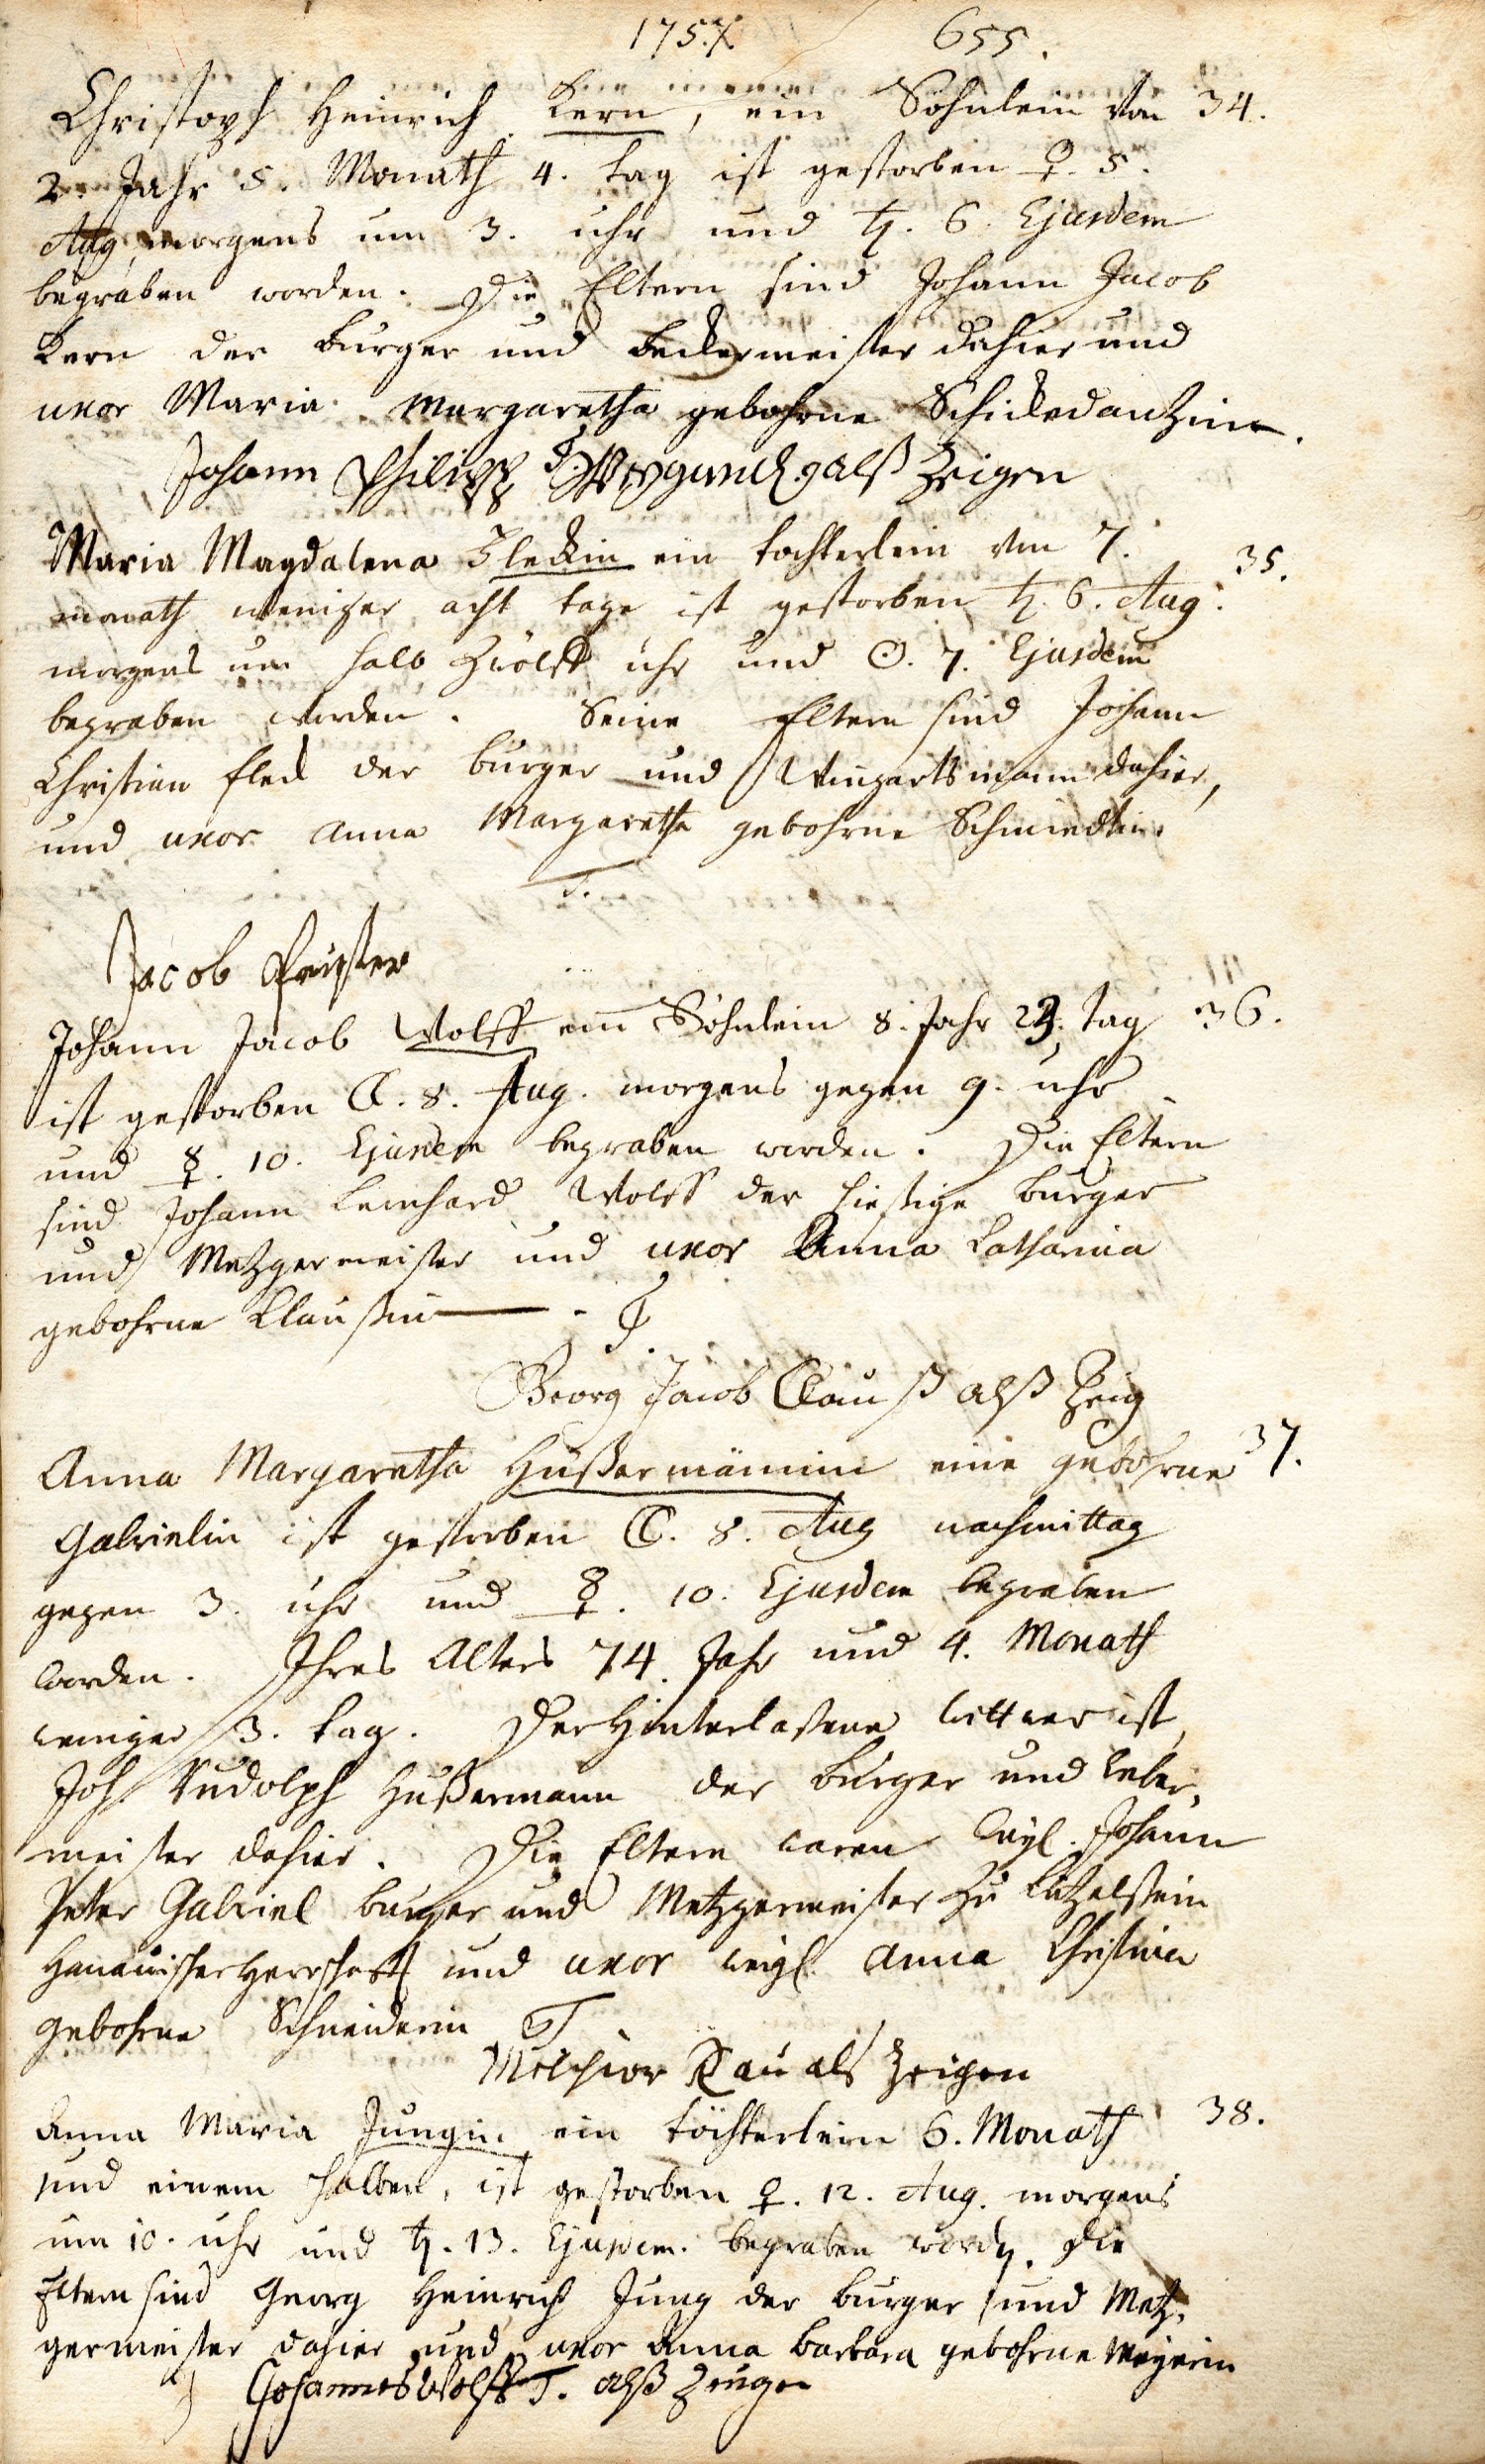 1757. 655.
Christoph Heinrich Kern, ein Söhnlein von 34.
2. Jahr 5. Monath 4. tag ist gestorben ♀. 5.
Aug. morgens um 3. uhr und ♄. 6. Ejusdem
begraben worden. Die Eltern sind Johann Jacob
Kern der burger und beckermeister dahier und
uxor Maria Margaretha gebohrne Schickedanzin.
Johann Philipp Weygandt alß Zeigen
Maria Magdalena Fleckin ein tochterlein von 7. 35.
monath weniger acht tage ist gestorben ♄. 6. Aug.
morgens um halb zwölff uhr und ☉. 7. Ejusdem
begraben worden. Seine Eltern sind Johann
Christian Fleck der burger und Wingartsmann dahier,
und uxor Anna Margaretha gebohrne Schmiedtin.
T.
Jacob
Johann Jacob Wolff ein Söhnlein 8. Jahr 23. tag 36.
ist gestorben ☾. 8. Aug. morgens gegen 9. uhr
und ☿. 10. Ejusdem begraben worden. Die Eltern
sind Johann Leonhard Wolff der hiesige burger
und Metzgermeister und uxor Anna Catharina
gebohrne Klaußin - T.
Georg Jacob Clauß alß Zeig
Anna Margaretha Hußermännin eine gebohrne 37.
Gabrielin ist gestorben ☾. 8. Aug nachmittag
gegen 3. uhr und ☿. 10. Ejusdem begraben
worden. Ihres Alters 74. Jahr und 4. Monath
weniger 3. tag. Der hinterlaßene wittwer ist
Joh. Rudolph Hußermann der burger und weber,
meister dahier. Die Eltern waren weyl. Johann
Peter Gabriel burger und Metzgermeister zu Lützelstein
Hanauischer Herrschafft und uxor weyl. Anna Christina
gebohrne Schneiderin T.
Melchior Rau als Zeigen
Anna Maria Jungin ein töchterlein 6. Monath 38.
und einem halben, ist gestorben ♀. 12. Aug. morgens
um 10. uhr und ♄. 13. Ejusdem. begraben word. die
Eltern sind Georg Heinrich Jung der burger und Metz-
germeister dahier und uxor Anna barbara gebohrne Meyerin
Johannes Wolff T. alß Zeugen